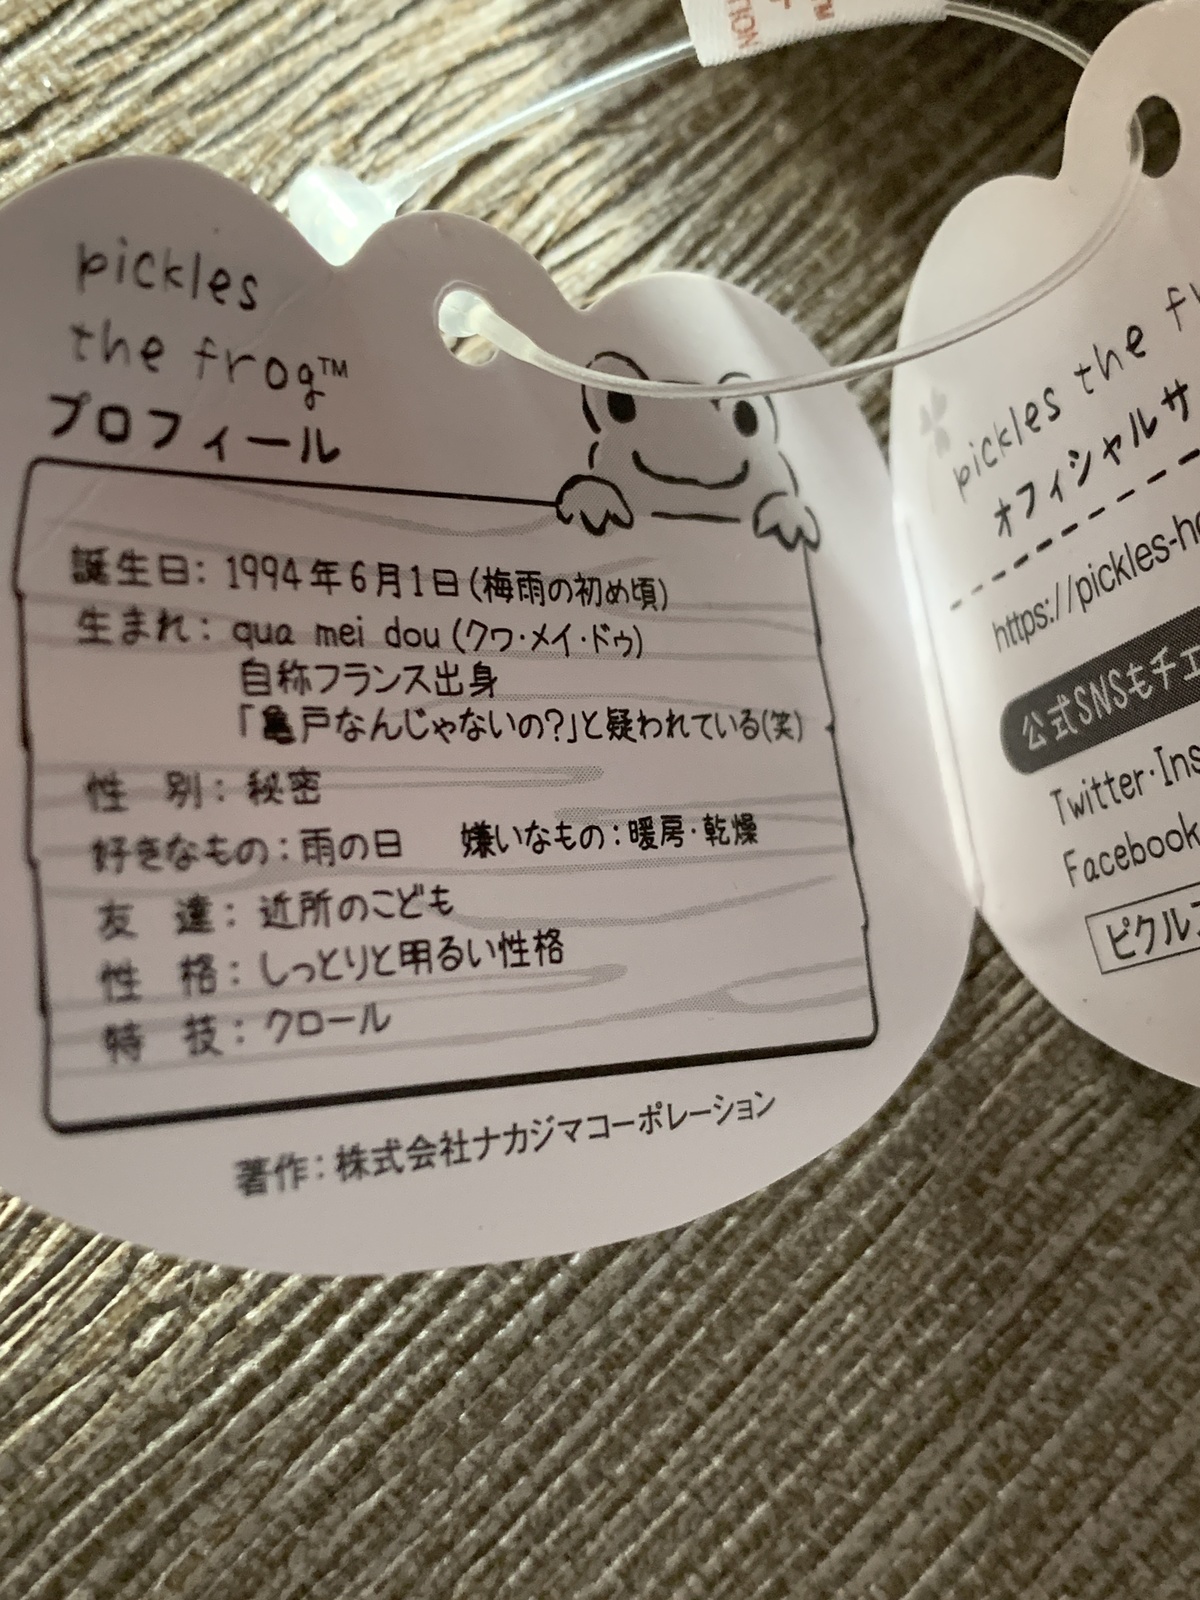 pickles
the frog™
プロフィール
誕生日：1994年6月1日（梅雨の初め頃）
生まれ：qua mei dou（クワ・メイ・ドゥ）
自称フランス出身
「亀戸なんじゃないの?」と疑われている（笑）
性　別：秘密
好きなもの：雨の日　嫌いなもの：暖房・乾燥
友　達：近所のこども
性　格：しっとりと明るい性格
特　技：クロール
著作：株式会社ナカジマコーポレーション
pickles the
オフィシャルサ
https://pickles-h
公式SNSもチェ
Twitter・Ins
Facebook
ピクル
TION
™